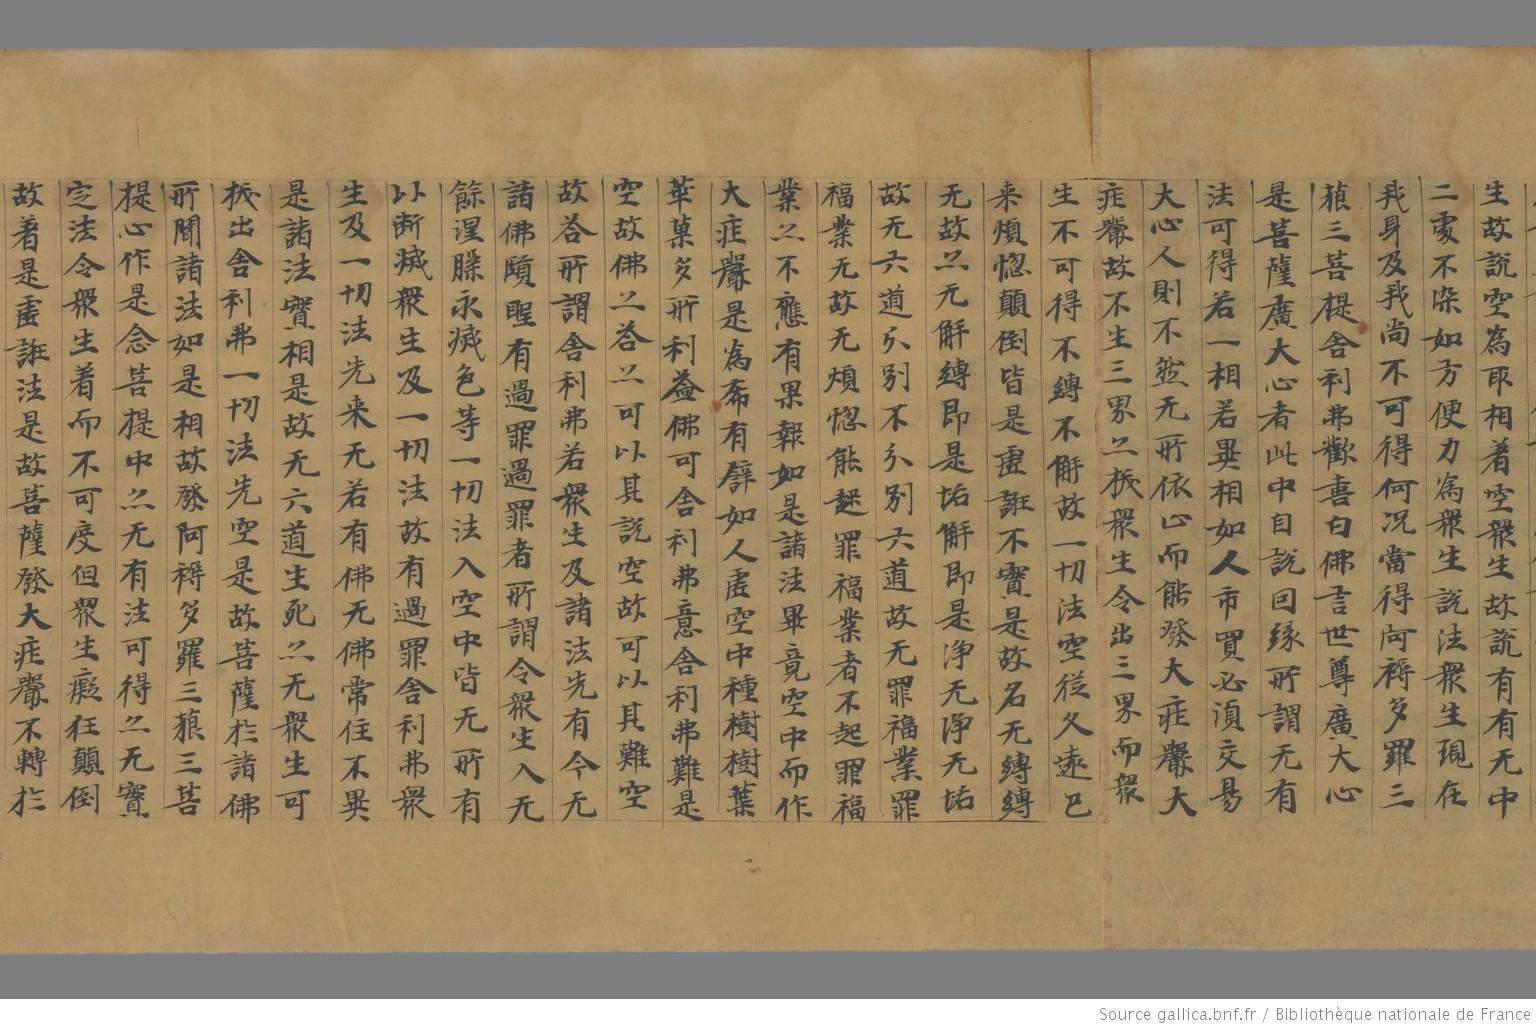 生故説空為取相着空衆生故説有有无中
二處不染如方便力為衆生説法衆生現在
我身及我尚不可得何况當得阿耨多羅三
藐三菩提舍利弗歡喜白佛言世尊廣大心
是菩薩廣大心者此中自説因緣所謂无有
法可得若一相若異相如人市買必湏交易
大心人則不然无所依止而能發大疰嚴大
疰嚴故不生三界亦拔衆生令出三界而衆
生不可得不縛不解故一切法空從久遠已
来煩惱顛倒皆是虚誑不實是故名无縛縛
无故亦无解縛即是垢解即是净无净无垢
故无六道分别不分别六道故无罪福業罪
福業无故无煩惱能起罪福業者不起罪福
業亦不應有果報如是諸法畢竟空中而作
大疰嚴是為希有辟如人虚空中種樹樹葉
華菓多所利益佛可舍利弗意舍利弗難是
空故佛亦答亦可以其説空故可以其難空
故答所謂舍利弗若衆生及諸法先有今无
諸佛賢聖有過罪過罪者所謂令衆生入无
餘涅槃永滅色等一切法入空中皆无所有
以断滅衆生及一切法故有過罪舍利弗衆
生及一切法先来无若有佛无佛常住不異
是諸法實相是故无六道生死亦无衆生可
拔出舍利弗一切法先空是故菩薩於諸佛
所聞諸法如是相故發阿耨多羅三藐三菩
提心作是念菩提中亦无有法可得亦无實
定法令衆生着而不可度但衆生癡狂顛倒
故着是虚誑法是故菩薩發大疰嚴不轉於
Source gallica.bnf.fr / Bibliothèque nationale de France